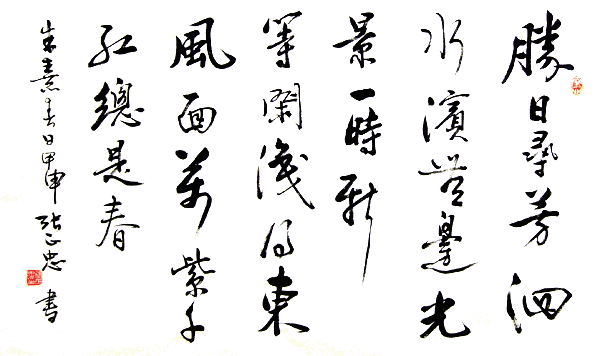 勝日尋芳泗
水濱無邊光
景一時新
等閑識得東
風面萬紫千
紅總是春
朱熹春日甲申張正忠書